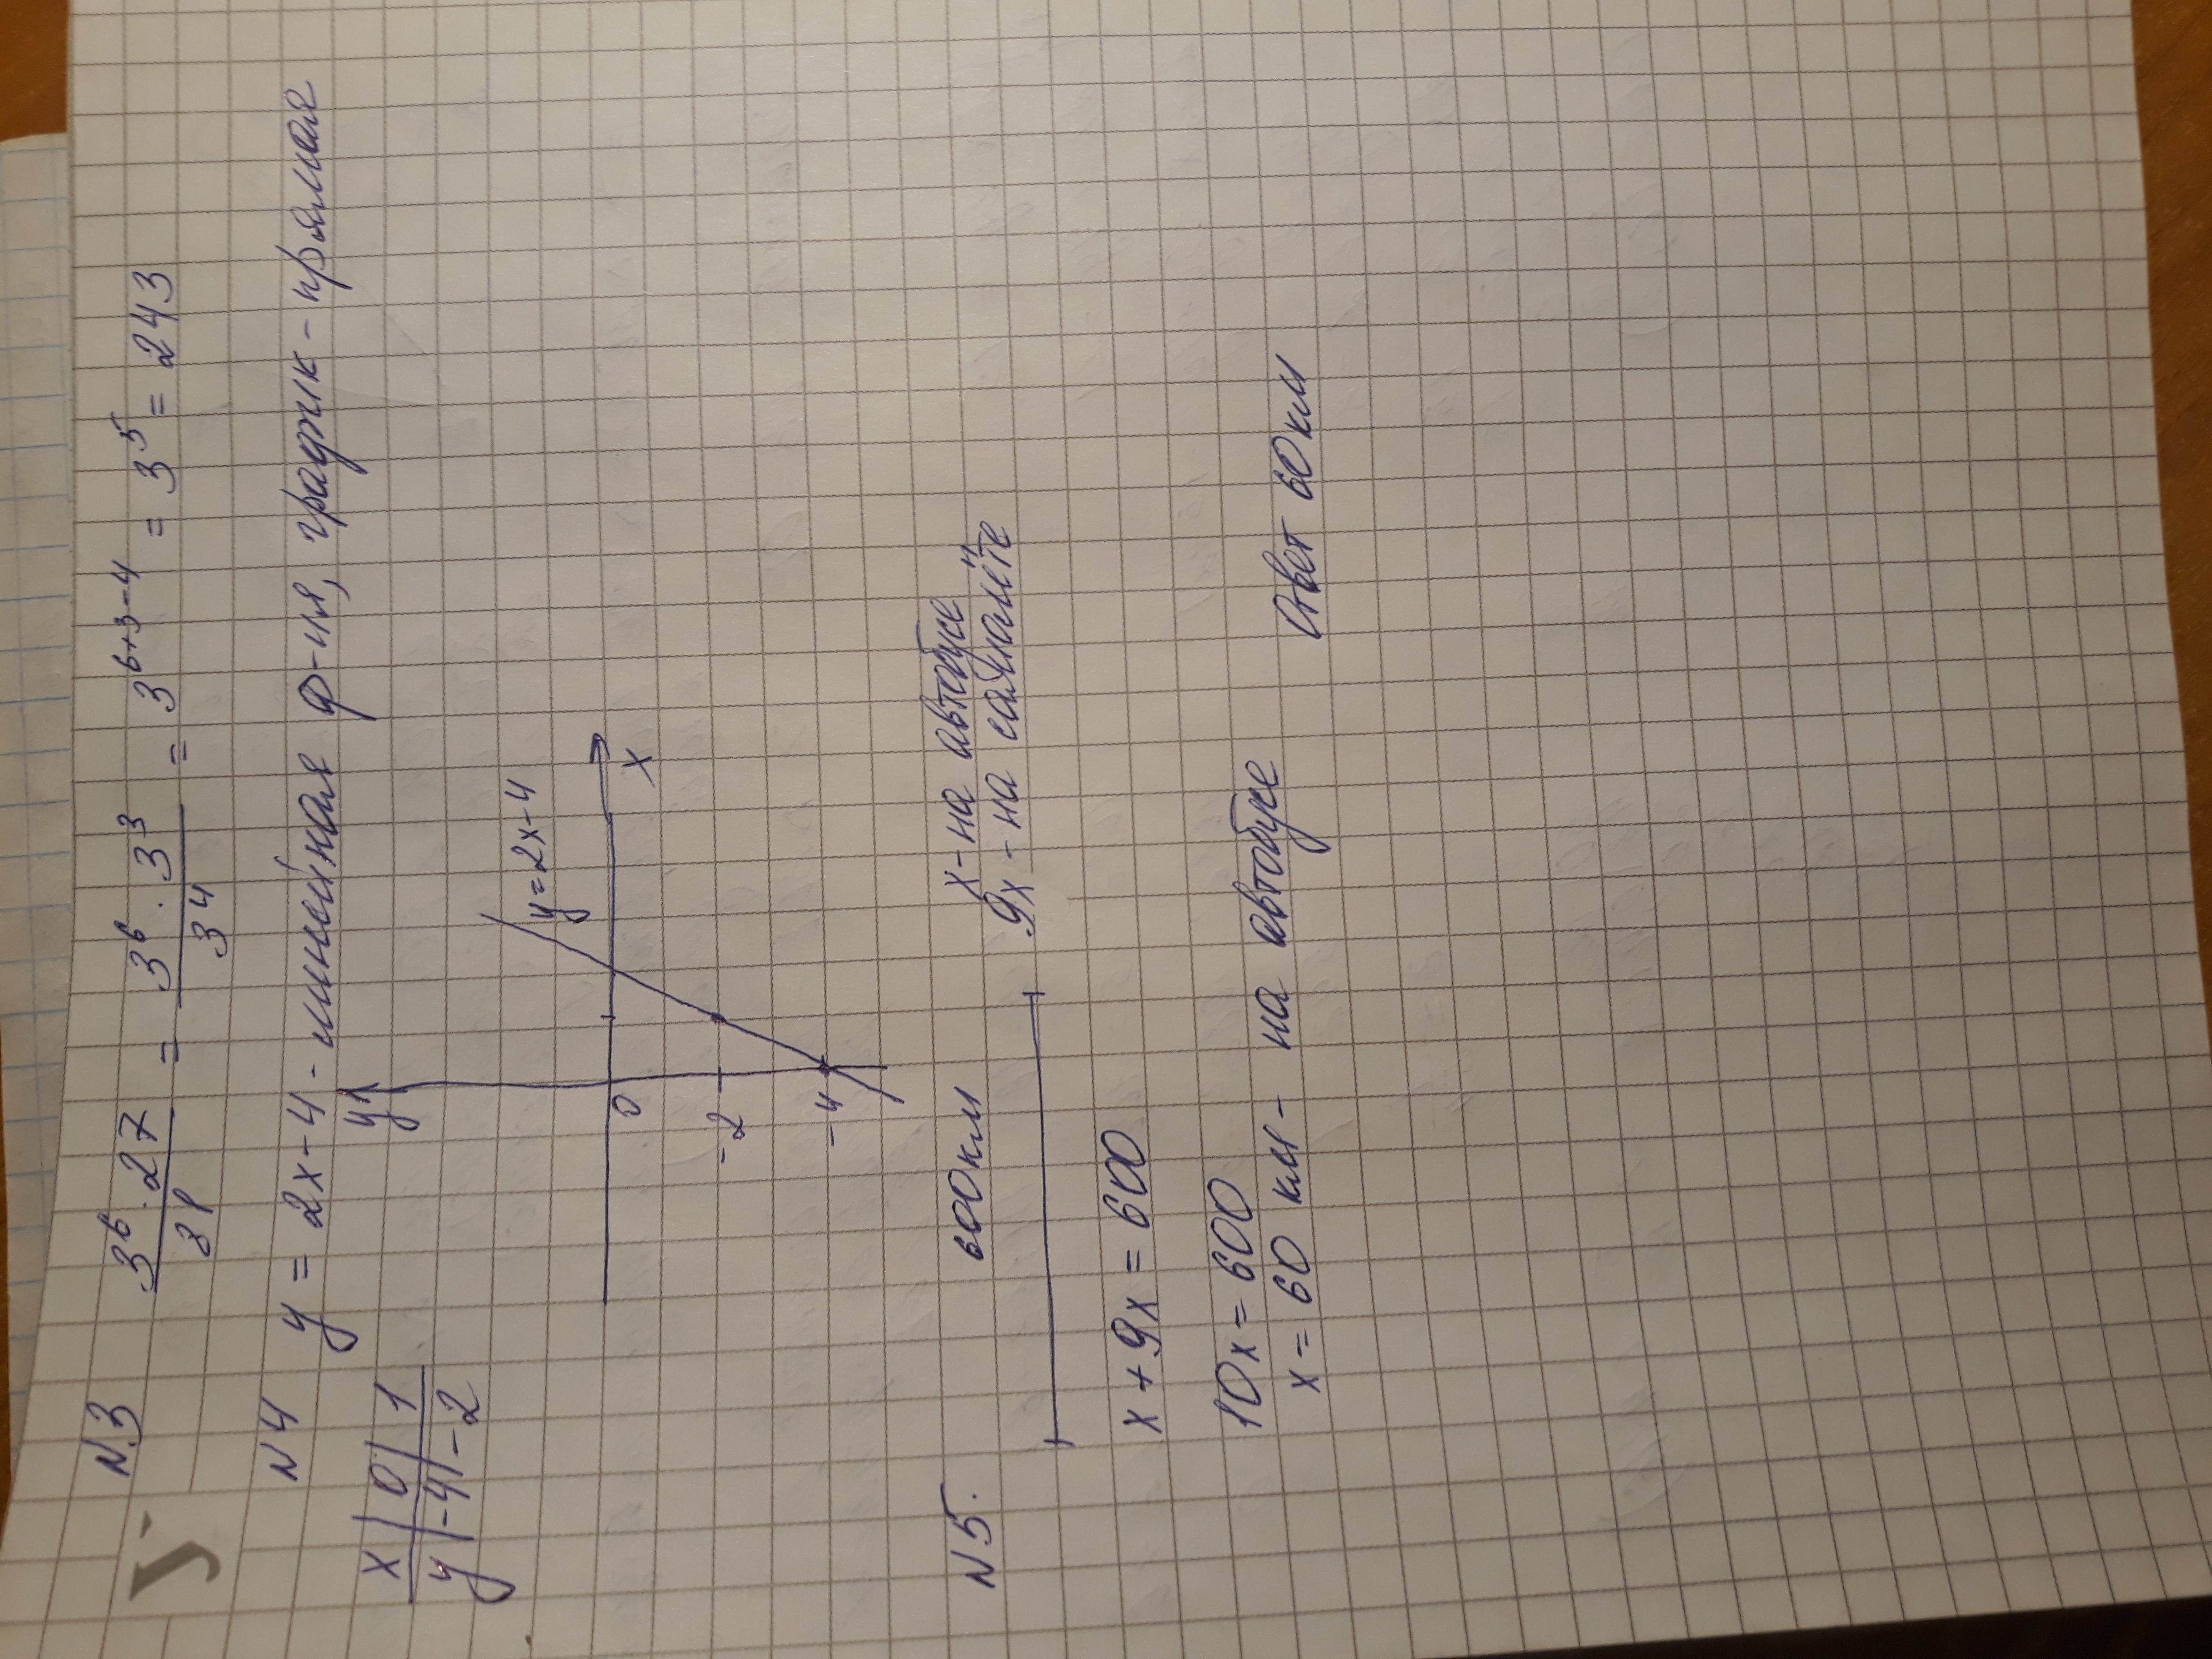 У
N3 3⁶ · 27 / 81 = 3⁶ · 3³ / 3⁴ = 3⁶⁺³⁻⁴ = 3⁵ = 243
N4 y = 2x-4 - линейная ф-ия, график - прямая
x | 0 | 1
y | -4 | -2
y
y=2x-4
0
x
-2
-4
N5. 600км
x - на автобусе
9x - на самолёте
x + 9x = 600
10x = 600
x = 60 км - на автобусе
Ответ 60км